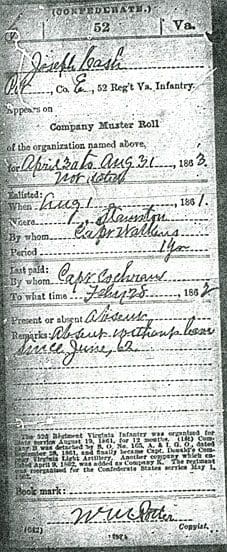 (CONFEDERATE.)
52 Va.
Joseph Cash
Pvt, Co. E, 52 Reg't Va. Infantry.
Appears on
Company Muster Roll
of the organization named above,
for April 30 to Aug 31, 1863.
not dated
Enlisted:
When Aug 1, 1861.
Where Staunton
By whom Capt Watkins
Period 1 yr
Last paid:
By whom Capt Cochran
To what time Feby 28, 1862
Present or absent Absent
Remarks: Absent without leave
since June, 62
The 52d Regiment Virginia Infantry was organized for
State service August 19, 1861, for 12 months. (1st) Com-
pany B was detached by S. O. No. 165, A. & I. G. O., dated
September 28, 1861, and finally became Capt. Donald's Com-
pany Virginia Light Artillery. Another company which en-
listed April 9, 1862, was added as Company K. The regiment
was reorganized for the Confederate States service May 1,
1862.
Book mark:
(642)
Copyist.